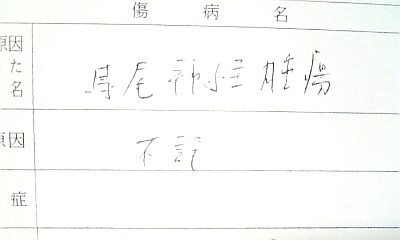 傷病名
原因
た
名
馬尾神経腫瘍
原因
不詳
症